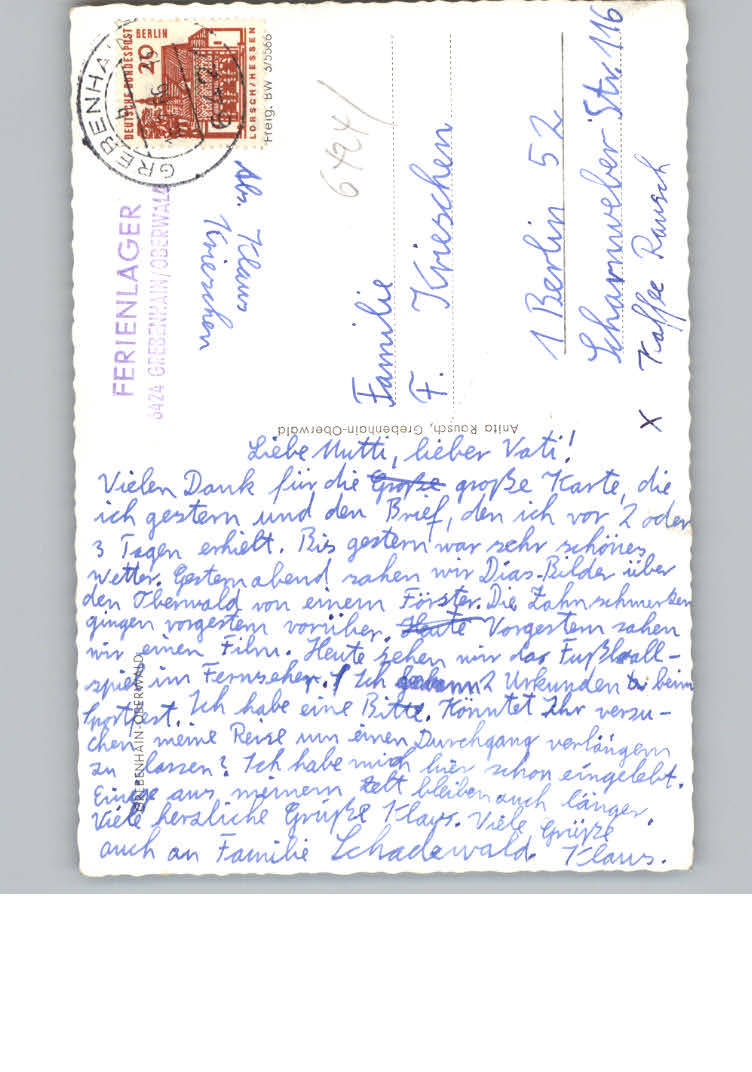 Liebe Mutti, lieber Vati!
Vielen Dank für die Große große Karte, die
ich gestern und den Brief, den ich vor 2 oder
3 Tagen erhielt. Bis gestern war sehr schönes
Wetter. Gestern abend sahen wir Dias-Bilder über
den Oberwald von einem Förster. Die Zahnschmerzen
gingen vorgestern vorüber. Heute Vorgestern sahen
wir einen Film. Heute sehen wir das Fußball-
spiel im Fernseher. Ich gewann 2 Urkunden beim
Sportfest. Ich habe eine Bitte. Könntet Ihr versu-
chen meine Reise um einen Durchgang verlängern
zu lassen? Ich habe mich hier schon eingelebt.
Einige aus meinem Zelt bleiben auch länger.
Viele herzliche Grüße Klaus. Viele Grüße
auch an Familie Schadewald. Klaus.
GREBENHAIN-OBERWALD
Anita Rausch, Grebenhain-Oberwald
FERIENLAGER
6424 GREBENHAIN/OBERWALD
Abs. Klaus
Krieschen
GREBENHAIN
DEUTSCHE BUNDESPOST
BERLIN
20
LORSCH/HESSEN
Freig. BW 3/5566
6424/
Familie
F. Krieschen
1 Berlin 52
Scharnweber Str. 116
X Kaffee Rausch